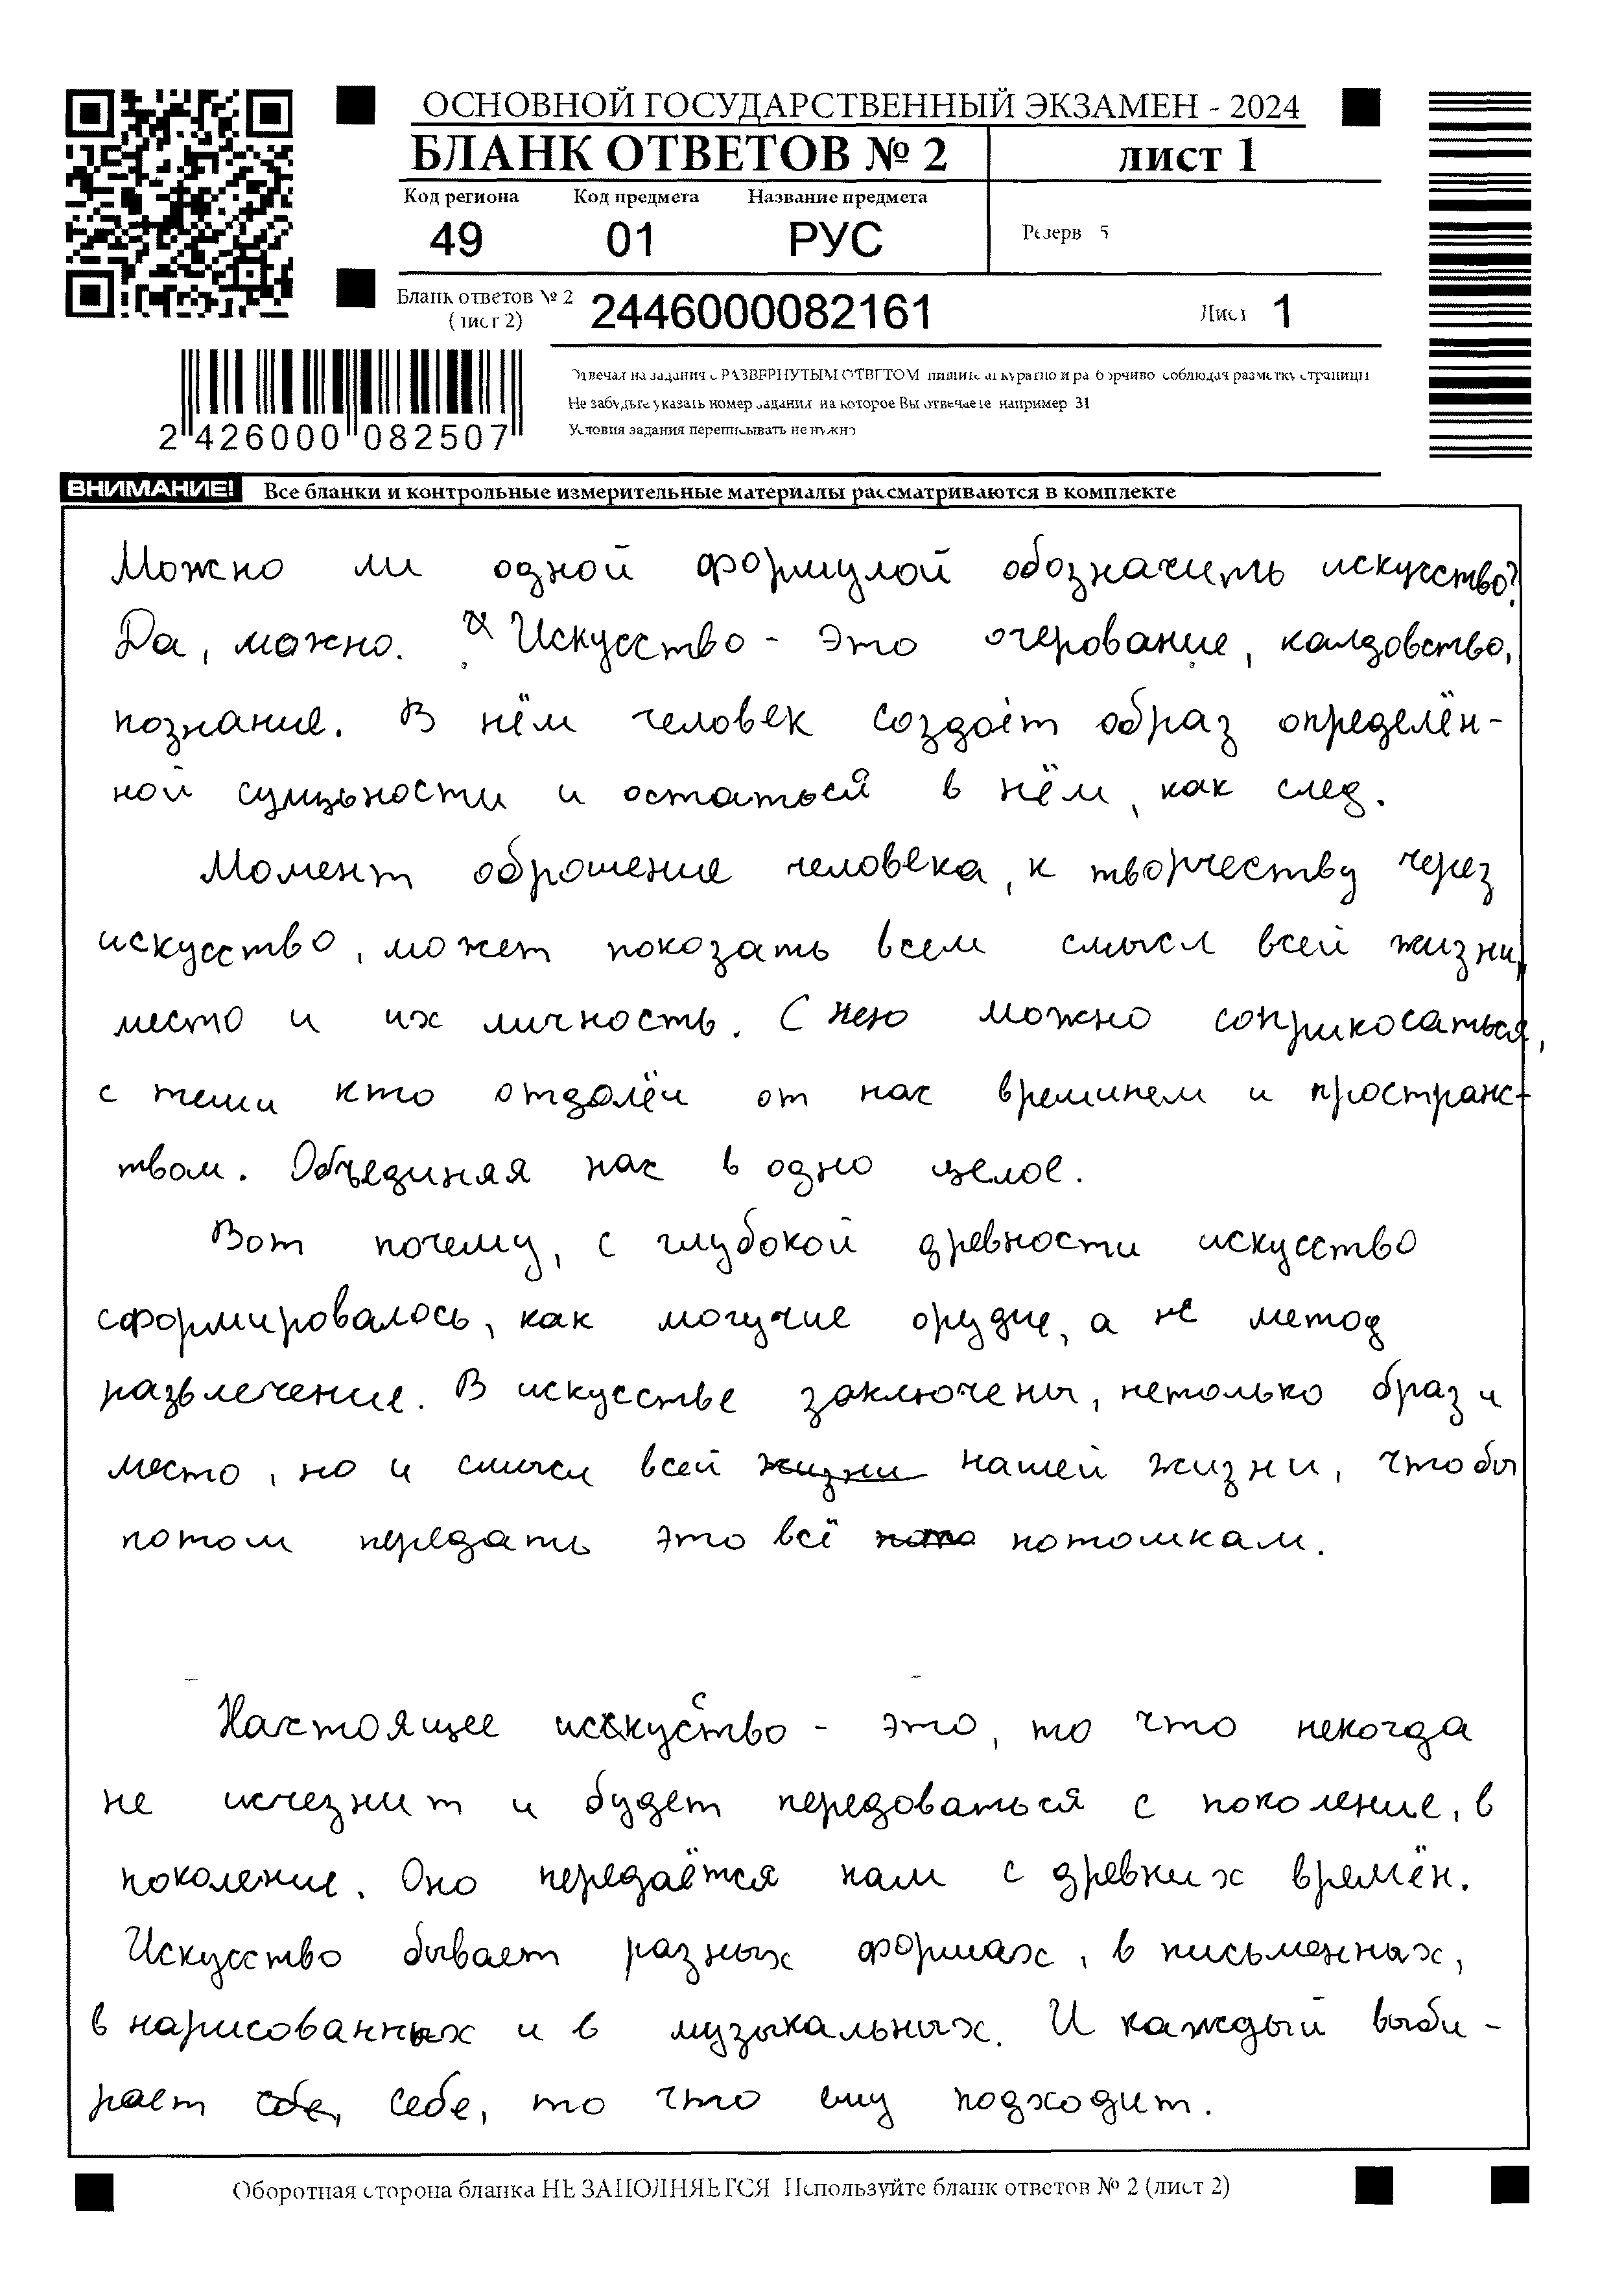 ОСНОВНОЙ ГОСУДАРСТВЕННЫЙ ЭКЗАМЕН - 2024
БЛАНК ОТВЕТОВ № 2 лист 1
Код региона Код предмета Название предмета
49 01 РУС Резерв 5
Бланк ответов № 2
(лист 2) 2446000082161 Лист 1
Отвечая на задания с РАЗВЕРНУТЫМ ОТВЕТОМ пишите аккуратно и разборчиво соблюдая разметку страницы
Не забудьте указать номер задания на которое Вы отвечаете например 31
Условия задания переписывать не нужно
2 426000 082507
ВНИМАНИЕ! Все бланки и контрольные измерительные материалы рассматриваются в комплекте
Можно ли одной формулой обозначить искусство?
Да, можно. Искусство - это очерование, калдовство,
познание. В нём человек создаёт образ определён-
ной сущьности и остаться в нём, как след.
Момент оброшение человека, к творчеству через
искусство, может показать всем смысл всей жизни,
место и их личность. С нею можно соприкосаться,
с теми кто отдолён от нас времинем и пространс-
твом. Объединяя нас в одно целое.
Вот почему, с глубокой древности искусство
сформировалось, как могучие орудие, а не метод
развлечение. В искусстве заключены, нетолько браз и
место, но и смысл всей жизни нашей жизни, чтобы
потом передать это всё пото потомкам.
Настоящее исскусство - это, то что некогда
не исчезнит и будет передоваться с поколение, в
поколение. Оно передаётся нам с древних времён.
Искусство бывает разных формах, в письменных,
в нарисованных и в музыкальных. И каждый выби-
рает сбе, себе, то что ему подходит.
Оборотная сторона бланка НЕ ЗАПОЛНЯЕТСЯ Используйте бланк ответов № 2 (лист 2)